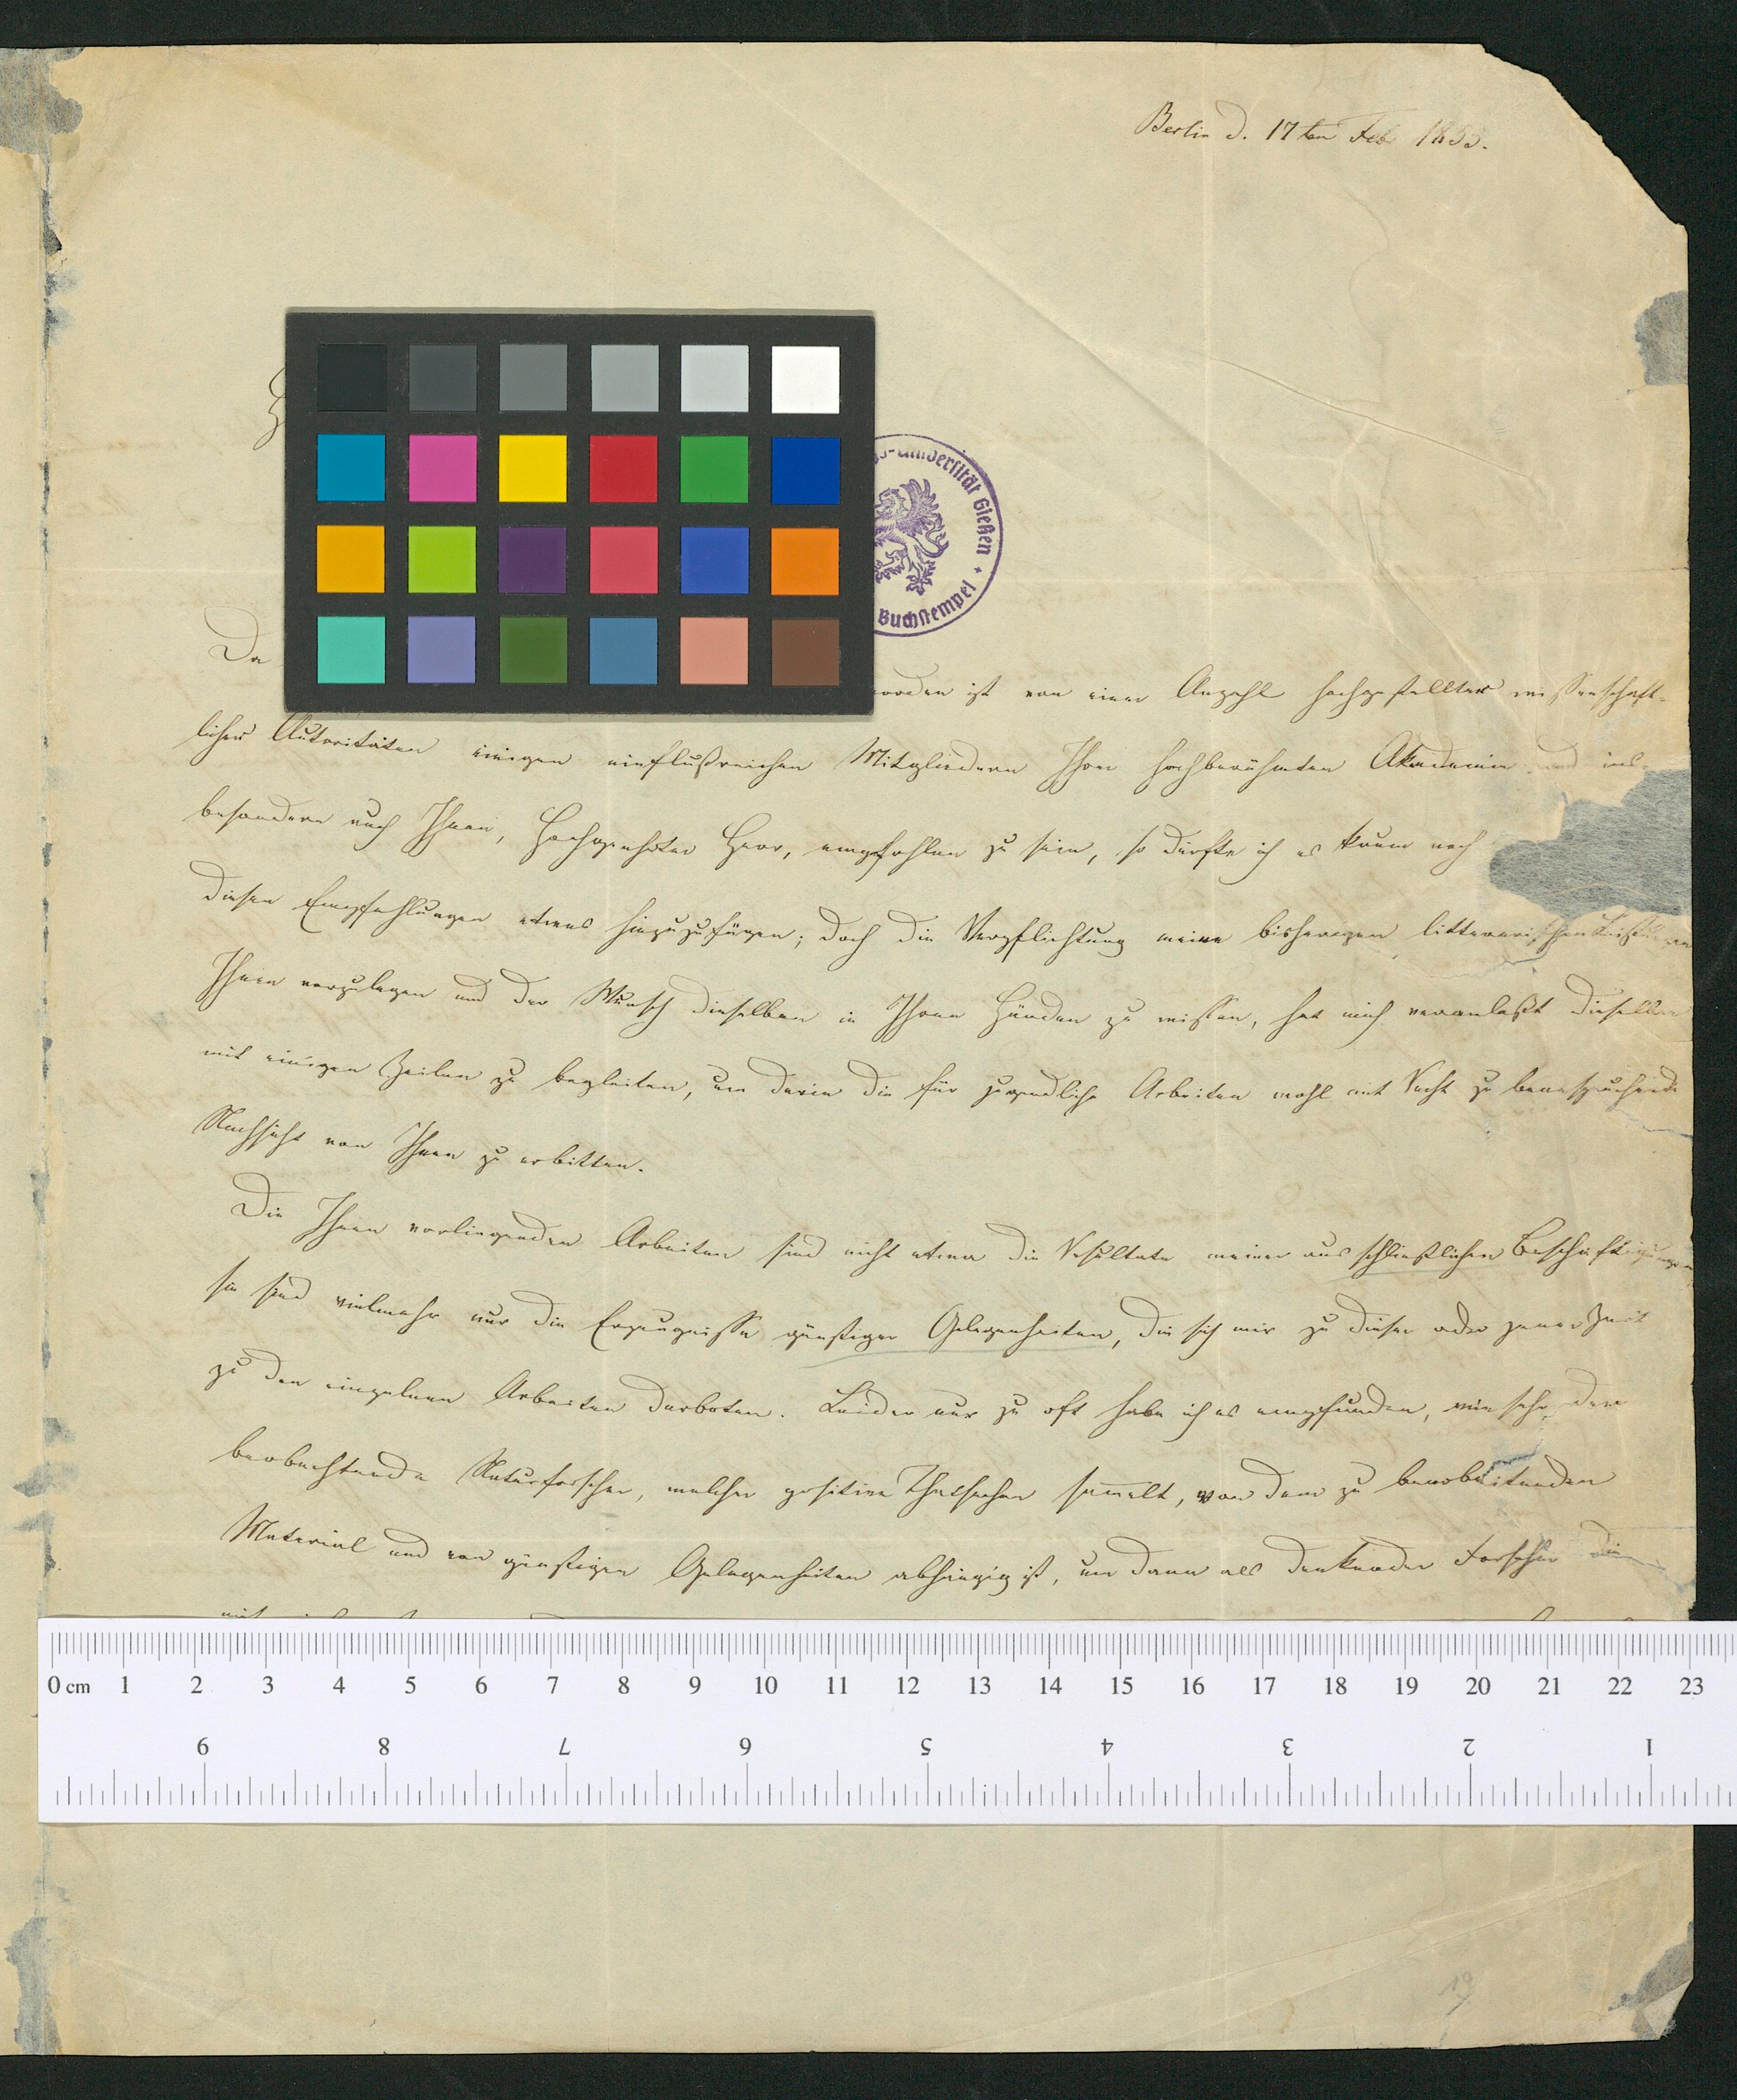 Berlin d. 17ten Feb 1853.
Universität Gießen
Buchstempel
Da
worden ist von einer Anzahl hochgestellter wissenschaft-
licher Autoritäten einigen einflußreichen Mitgliedern Ihrer hochberühmten Akademie und ins-
besondere auch Ihnen, Hochgeehrter Herr, empfohlen zu sein, so dürfte ich es kaum noch
diesen Empfehlungen etwas hinzuzufügen; doch die Verpflichtung meine bisherigen litterarischen Leistungen
Ihnen vorzulegen und der Wunsch dieselben in Ihren Händen zu wissen, hat mich veranlaßt dieselben
mit einigen Zeilen zu begleiten, um darin die für jugendliche Arbeiten wohl mit Recht zu beanspruchende
Nachsicht von Ihnen zu erbitten.
Die Ihnen vorliegenden Arbeiten sind nicht etwa die Resultate meiner ausschließlichen Beschäftigungen
sie sind vielmehr nur die Erzeugnisse günstiger Gelegenheiten, die sich mir zu dieser oder jener Zeit
zu den einzelnen Arbeiten darboten. Leider nur zu oft habe ich es empfunden, wie sehr der
beobachtende Naturforscher, welcher positive Thatsachen sammelt, von dem zu bearbeitenden
Material und von günstigen Gelegenheiten abhängig ist, um dann als denkender Forscher die
0 cm 1 2 3 4 5 6 7 8 9 10 11 12 13 14 15 16 17 18 19 20 21 22 23
9 8 7 6 5 4 3 2 1
19